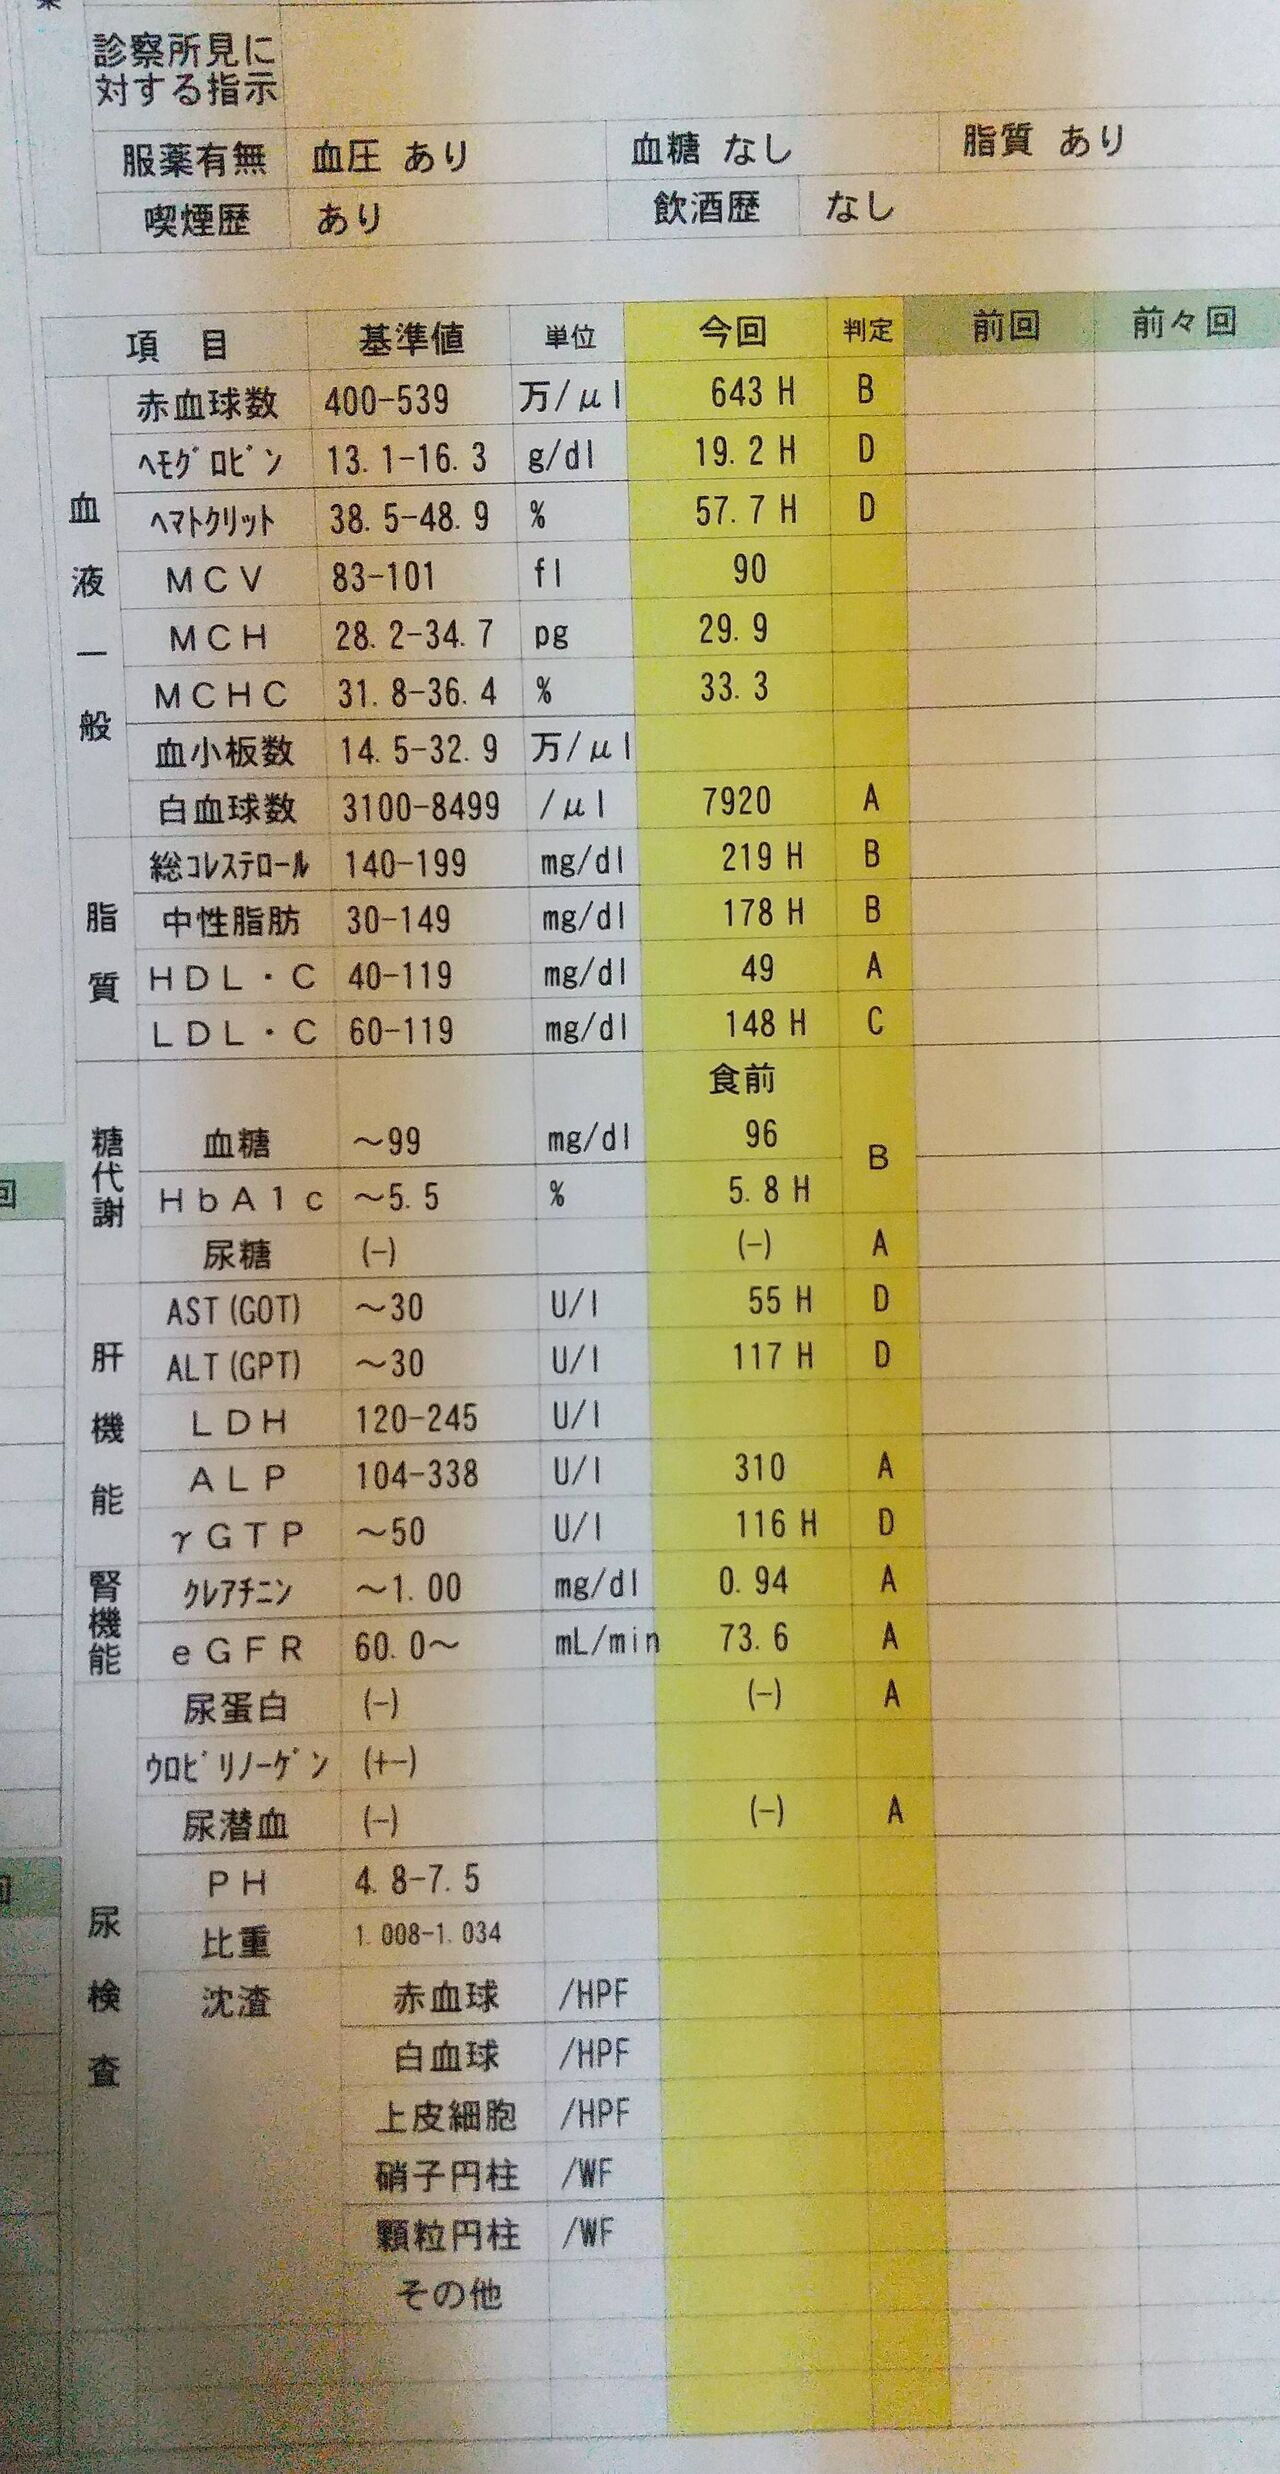 診察所見に
対する指示
服薬有無 血圧 あり 血糖 なし 脂質 あり
喫煙歴 あり 飲酒歴 なし
項 目 基準値 単位 今回 判定 前回 前々回
血液一般
赤血球数 400-539 万/μl 643 H B
ﾍﾓｸﾞﾛﾋﾞﾝ 13.1-16.3 g/dl 19.2 H D
ﾍﾏﾄｸﾘｯﾄ 38.5-48.9 % 57.7 H D
MCV 83-101 fl 90
MCH 28.2-34.7 pg 29.9
MCHC 31.8-36.4 % 33.3
血小板数 14.5-32.9 万/μl
白血球数 3100-8499 /μl 7920 A
脂質
総ｺﾚｽﾃﾛｰﾙ 140-199 mg/dl 219 H B
中性脂肪 30-149 mg/dl 178 H B
HDL・C 40-119 mg/dl 49 A
LDL・C 60-119 mg/dl 148 H C
糖代謝
食前
血糖 ～99 mg/dl 96 B
HbA1c ～5.5 % 5.8 H
尿糖 (-) (-) A
肝機能
AST(GOT) ～30 U/l 55 H D
ALT(GPT) ～30 U/l 117 H D
LDH 120-245 U/l
ALP 104-338 U/l 310 A
γGTP ～50 U/l 116 H D
腎機能
ｸﾚｱﾁﾆﾝ ～1.00 mg/dl 0.94 A
eGFR 60.0～ mL/min 73.6 A
尿検査
尿蛋白 (-) (-) A
ｳﾛﾋﾞﾘﾉｰｹﾞﾝ (+-)
尿潜血 (-) (-) A
PH 4.8-7.5
比重 1.008-1.034
沈渣 赤血球 /HPF
白血球 /HPF
上皮細胞 /HPF
硝子円柱 /WF
顆粒円柱 /WF
その他
回